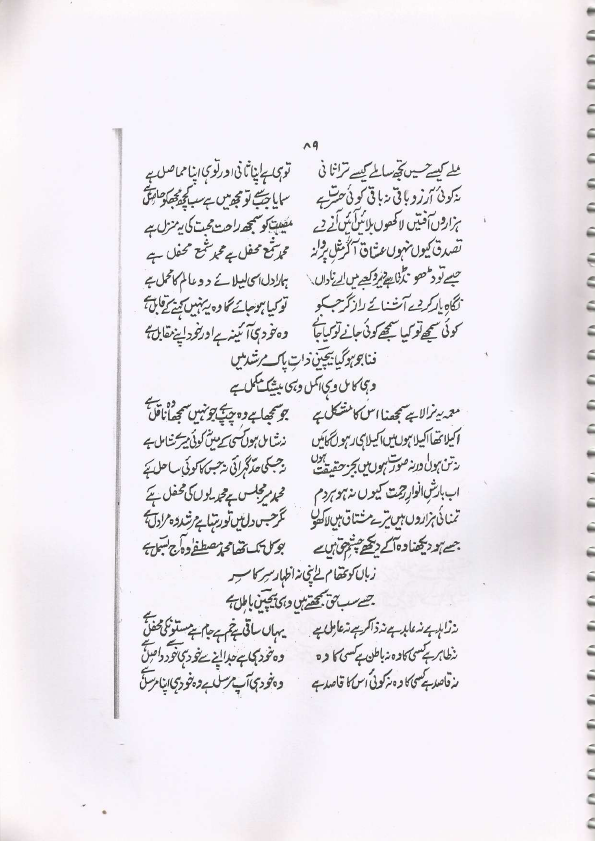 ۸۹
ملے کیسے حسیں تجھ سا ملے کیسے ترا ثانی توہی ہے اپنا ثانی اور توہی اپنا مماصل ہے
نہ کوئی آرزو باقی نہ باقی کوئی حسرت ہے سمایا جب سے تو مجھ میں ہے سب کچھ مجھکو حاصل ہے
ہزاروں آفتیں لاکھوں بلائیں آئیں آنے دے مصیبت کو سمجھ راحت محبت کی یہ منزل ہے
تصدق کیوں نہوں عشاق آ کر مثل پروانہ محمد شمع محفل ہے محمد شمع محفل ہے
جسے تو ڈھونڈتی ہے دیر و کعبے میں اے ناداں ہمارا دل اسی لیلائے دو عالم کا محمل ہے
نگاہ یار کر دے آشنائے راز گر جسکو تو کیا ہو جائے گا وہ یہ نہیں کہنے کے قابل ہے
کوئی سمجھے تو کیا سمجھے کوئی جانے تو کیا جانے وہ خود ہی آئینہ ہے اور خود اپنے مقابل ہے
فنا جو ہو گیا بیچین ذات پاک مرشد میں
وہی کامل وہی اکمل وہی بیشک مکمل ہے
معمہ یہ نرالا ہے سمجھنا اس کا مشکل ہے جو سمجھا ہے وہ چپ ہے جو نہیں سمجھا وہ ناقل ہے
اکیلا تھا اکیلا ہوں میں اکیلا ہی رہوں گا میں نہ شامل ہوں کسی کے میں نہ کوئی میرے شامل ہے
نہ تن ہوں اور نہ صورت ہوں میں بحر حقیقت ہوں نہ جسکی حد گہرائی نہ جس کا کوئی ساحل ہے
اب بارش انوار رحمت کیوں نہ ہو ہر دم محمد میر مجلس ہے محمد یاروں کی محفل ہے
تمنائی ہزاروں ہیں ترے مشتاق ہیں لاکھوں مگر جس دل میں تو رہتا ہے مرشد وہ مرا دل ہے
جسے ہو دیکھنا وہ آ کے دیکھے چشم حق بیں سے جو کل تک تھا محمد مصطفےٰ وہ آج بسمل ہے
زباں کو تھام لے اپنی نہ اظہار سر کا سر
جسے سب حق سمجھتے ہیں وہی بیچین باطل ہے
نہ زاہد ہے نہ عابد ہے نہ ذاکر ہے نہ عامل ہے یہاں ساقی ہے خم ہے جام ہے مستونکی محفل ہے
نہ ظاہر ہے کسی کا وہ نہ باطن ہے کسی کا وہ وہ خود ہی ہے جدا اپنے سے خود ہی خود واصل ہے
نہ قاصد ہے کسی کا وہ نہ کوئی اس کا قاصد ہے وہ خود ہی آپ مرسل ہے وہ خود ہی اپنا مرسل ہے